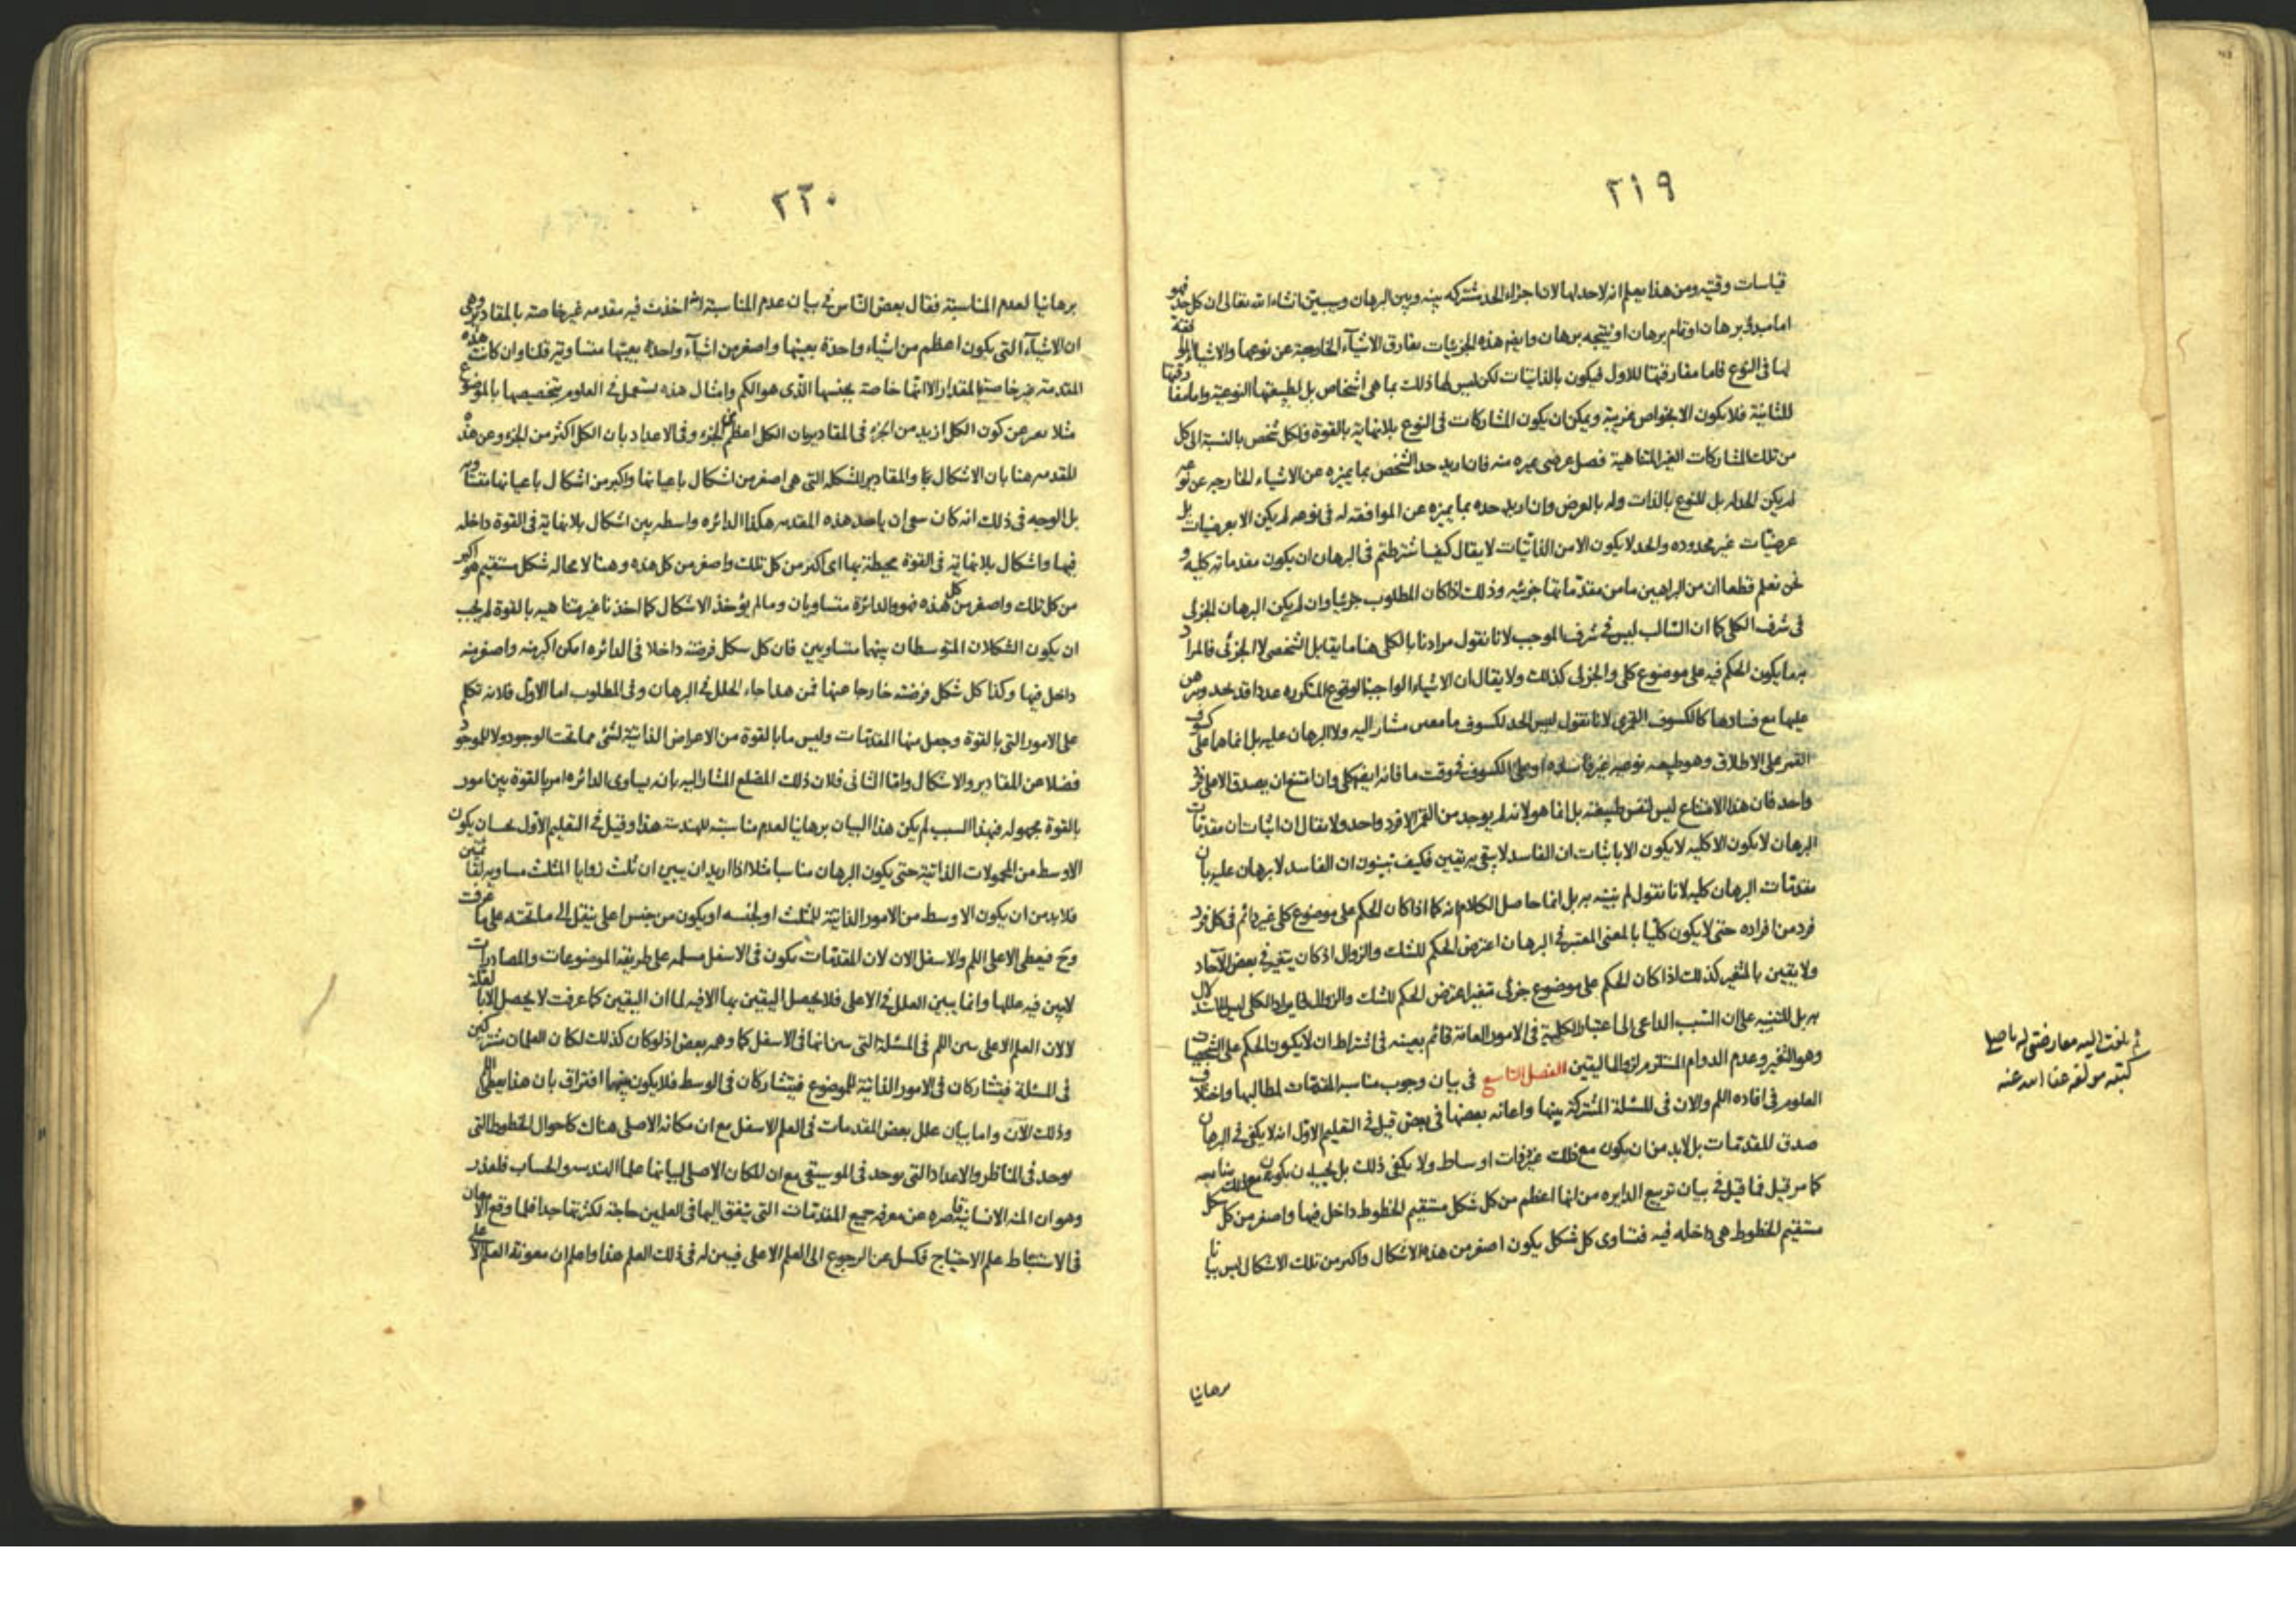 ٢١٩
قياسات وقتيه ومن هذا يعلم انه لا حد لها لان اجزاء الحد مشتركه بينه وبين البرهان وسيبين انشاء الله تعالى ان كل حد فهو
اما مبدؤ برهان او تمام برهان او نتيجه برهان وايضا هذه الجزئيات تفارق الاشياء الخارجية عن نوعها والاشياء الموافقة
لها فى النوع فاما مفارقتها للاول فيكون بالذاتيات لكن ليس لها ذلك بما هى اشخاص بل لطبيعتها النوعية واما مفارقتها
للثانية فلا يكون الا بخواص غريبة ويمكن ان يكون المشاركات فى النوع بلا نهاية بالقوة فلكل شخص بالنسبة الى كل
من تلك المشاركات الغير المتناهية فصل عرضى يميزه منه فان اريد حد الشخص بما يميزه عن الاشياء الخارجه عن نوعه
لم يكن الحد له بل للنوع بالذات وله بالعرض وان اريد حده بما يميزه عن الموافقه له فى نوعه لم يكن الا بعرضيات بل
عرضيات غير محدوده والحد لا يكون الا من الذاتيات لا يقال كيف اشترطتم فى البرهان ان يكون مقدماته كليه و
نحن نعلم قطعا ان من البراهين ما من مقدماتها جزئيه وذلك اذا كان المطلوب جزئيا وان لم يكن البرهان الجزئى
فى شرف الكلى كما ان السالب ليس فى شرف الموجب لانا نقول مرادنا بالكلى هنا ما يقابل الشخصى لا الجزئى فالمراد
به ما يكون الحكم فيه على موضوع كلى والجزئى كذلك ولا يقال ان الاشياء الواجبة الوقوع المتكرره عددا قد تحد ويبرهن
عليها مع فسادها كالكسوف القمرى لانا نقول ليس الحد لكسوف ما معين مشار اليه ولا البرهان عليه بل انما هما على كسوف
القمر على الاطلاق وهو طبيعه نوعيه غير فاسده او على الكسوف فى وقت ما فانه ايضا كلى وان امتنع ان يصدق الا على فرد
واحد فان هذا الامتناع ليس لنفس طبيعته بل انما هو لانه لم يوجد من القمر الا فرد واحد ولا يقال ان اثبات ان مقدمات
البرهان لا يكون الا كليه لا يكون الا باثبات ان الفاسد لا يبقى به يقين فكيف تبينون ان الفاسد لا برهان عليه بان
مقدمات البرهان كليه لانا نقول لم نبينه به بل انما حاصل الكلام انه كما اذا كان الحكم على موضوع كلى غير دائم فى كل فرد
فرد من افراده حتى لا يكون كليا بالمعنى المعتبر فى البرهان اعترض الحكم للشك والزوال اذ كان يتغير فى بعض الآحاد
ولا يقين بالمتغير كذلك اذا كان الحكم على موضوع جزئى متغير اعترض الحكم للشك والزوال فايراد الكلى ليس للاستدلال
به بل للتنبيه على ان السبب الداعى الى اعتبار الكلية فى الامور العامة قائم بعينه فى اشتراط ان لا يكون الحكم على الشخصيات
وهو التغير وعدم الدوام المستلزم لزوال اليقين الفصل التاسع فى بيان وجوب مناسبه المقدمات لمطالبها واختلاف
العلوم فى افاده اللم والان فى المسئلة المشتركة بينها واعانه بعضها فى بعض قيل فى التعليم الاول انه لا يكفى فى البرهان
صدق المقدمات بل لابد من ان يكون مع ذلك غير ذوات اوساط ولا يكفى ذلك بل يجب ان يكون مع ذلك مناسبه
كما مر قيل فما قيل فى بيان تربيع الدايره من انها اعظم من كل شكل مستقيم الخطوط داخل فيها واصغر من كل شكل
مستقيم الخطوط هى داخله فيه فتساوى كل شكل يكون اصغر من هذه الاشكال واكبر من تلك الاشكال ليس بيانا
برهانيا
ثم بلغت اليه معارضتى له باصلى
كتبه مولفه عفا الله عنه
٢٢٠
برهانيا لعدم المناسبة فقال بعض الناس فى بيان عدم المناسبة انه اخذت فيه مقدمه غير خاصة بالمقادير وهى
ان الاشياء التى يكون اعظم من اشياء واحدة بعينها واصغر من اشياء واحدة بعينها متساوية قلنا وان كانت هذه
المقدمة غير خاصة بالمقدار الا انها خاصة بجنسها الذى هو الكم وامثال هذه يستعمل فى العلوم بتخصيصها بالموضوع
مثلا يعبر عن كون الكل ازيد من الجزء فى المقادير بان الكل اعظم من الجزء وفى الاعداد بان الكل اكثر من الجزء وعن هذه
المقدمه هنا بان الاشكال والمقادير المشكله التى هى اصغر من اشكال باعيانها واكبر من اشكال باعيانها متساويه
بل الوجيه فى ذلك انه كان ان ياخذ هذه المقدمه هكذا الدائره واسطه بين اشكال بلا نهاية فى القوة داخله
فيها واشكال بلا نهاية فى القوة محيطة بها اى اكبر من كل تلك واصغر من كل هذه وهنا لا محاله شكل مستقيم هو اكبر
من كل تلك واصغر من كل هذه فهو والدائرة متساويان وما لم يؤخذ الاشكال كما اخذنا غير متناهيه بالقوة لم يجب
ان يكون الشكلان المتوسطان بينهما متساويين فان كل شكل فرضته داخلا فى الدائره امكن اكبر منه واصغر منه
داخل فيها وكذا كل شكل فرضته خارجا عنها فمن هذا جاء الخلل فى البرهان وفى المطلوب اما الاول فلانه تكلم
على الامور التى بالقوة وجعل منها المقدمات وليس ما بالقوة من الاعراض الذاتية لشئ مما تحت الوجود ولا للموجود
فضلا عن المقادير والاشكال واما الثانى فلان ذلك المضلع المشار اليه بانه يساوى الدائره امر بالقوة بين امور
بالقوة مجهوله فبهذا السبب لم يكن هذا البيان برهانيا لعدم مناسبته للهندسة هذا وقيل فى التعليم الاول يجب ان يكون
الاوسط من المحمولات الذاتية حتى يكون البرهان مناسبا مثلا اذا اريد ان يبين ان ثلث زوايا المثلث مساويه لقائمتين
فلابد من ان يكون الاوسط من الامور الذاتية للمثلث او لجنسه او يكون من جنس اعلى ينقل الى ما تحته على ما عرفت
وح فيعطى الاعلى اللم والاسفل الان لان المقدمات يكون فى الاسفل مسلمه على طريقه الموضوعات والمصادرات
لا يبين فيه عللها وانما يبين العلل فى الاعلى فلا يحصل اليقين بها الا فيه لما ان اليقين كما عرفت لا يحصل الا بالعلة
لا لان العلم الاعلى يبين اللم فى المسئلة التى يبين انها فى الاسفل كما وهمه بعض اذ لو كان كذلك لكان العلمان مشتركين
فى المسئلة فيتشاركان فى الامور الذاتية للموضوع فيتشاركان فى الوسط فلا يكون بينهما افتراق بان هذا يعطى اللم
وذلك الان واما بيان علل بعض المقدمات فى العلم الاسفل مع ان مكانه الاصلى هناك كاحوال الخطوط التى
يوجد فى المناظر والاعداد التى يوجد فى الموسيقى مع ان المكان الاصلى لبيانها علما الهندسه والحساب فلعذر
وهو ان المنه الانسانية قاصره عن معرفه جميع المقدمات التى يتفق اليها فى العلمين حاجة لكثرتها جدا فلما وقع الامعان
فى الاستنباط علم الاحتياج فكسل عن الرجوع الى العلم الاعلى فيبين له فى ذلك العلم هذا واعلم ان معونة العلم الاعلى